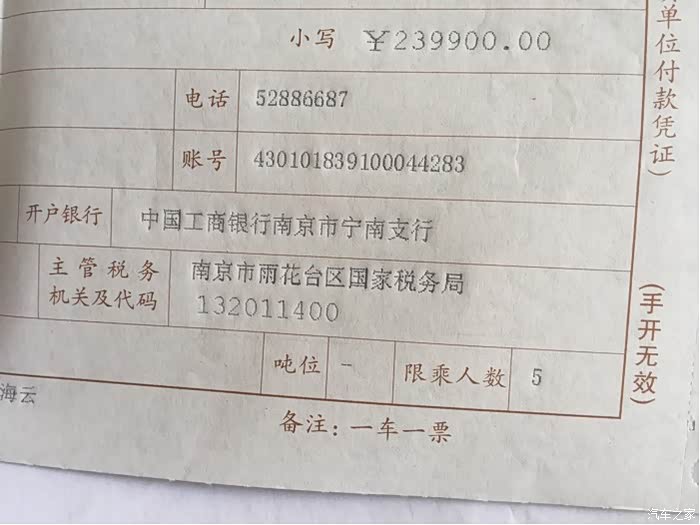 小写 ¥239900.00
电话 52886687
账号 430101839100044283
开户银行 中国工商银行南京市宁南支行
主管税务机关及代码 南京市雨花台区国家税务局
132011400
吨位 - 限乘人数 5
海云
备注：一车一票
单位付款凭证）
（手开无效）
汽车之家